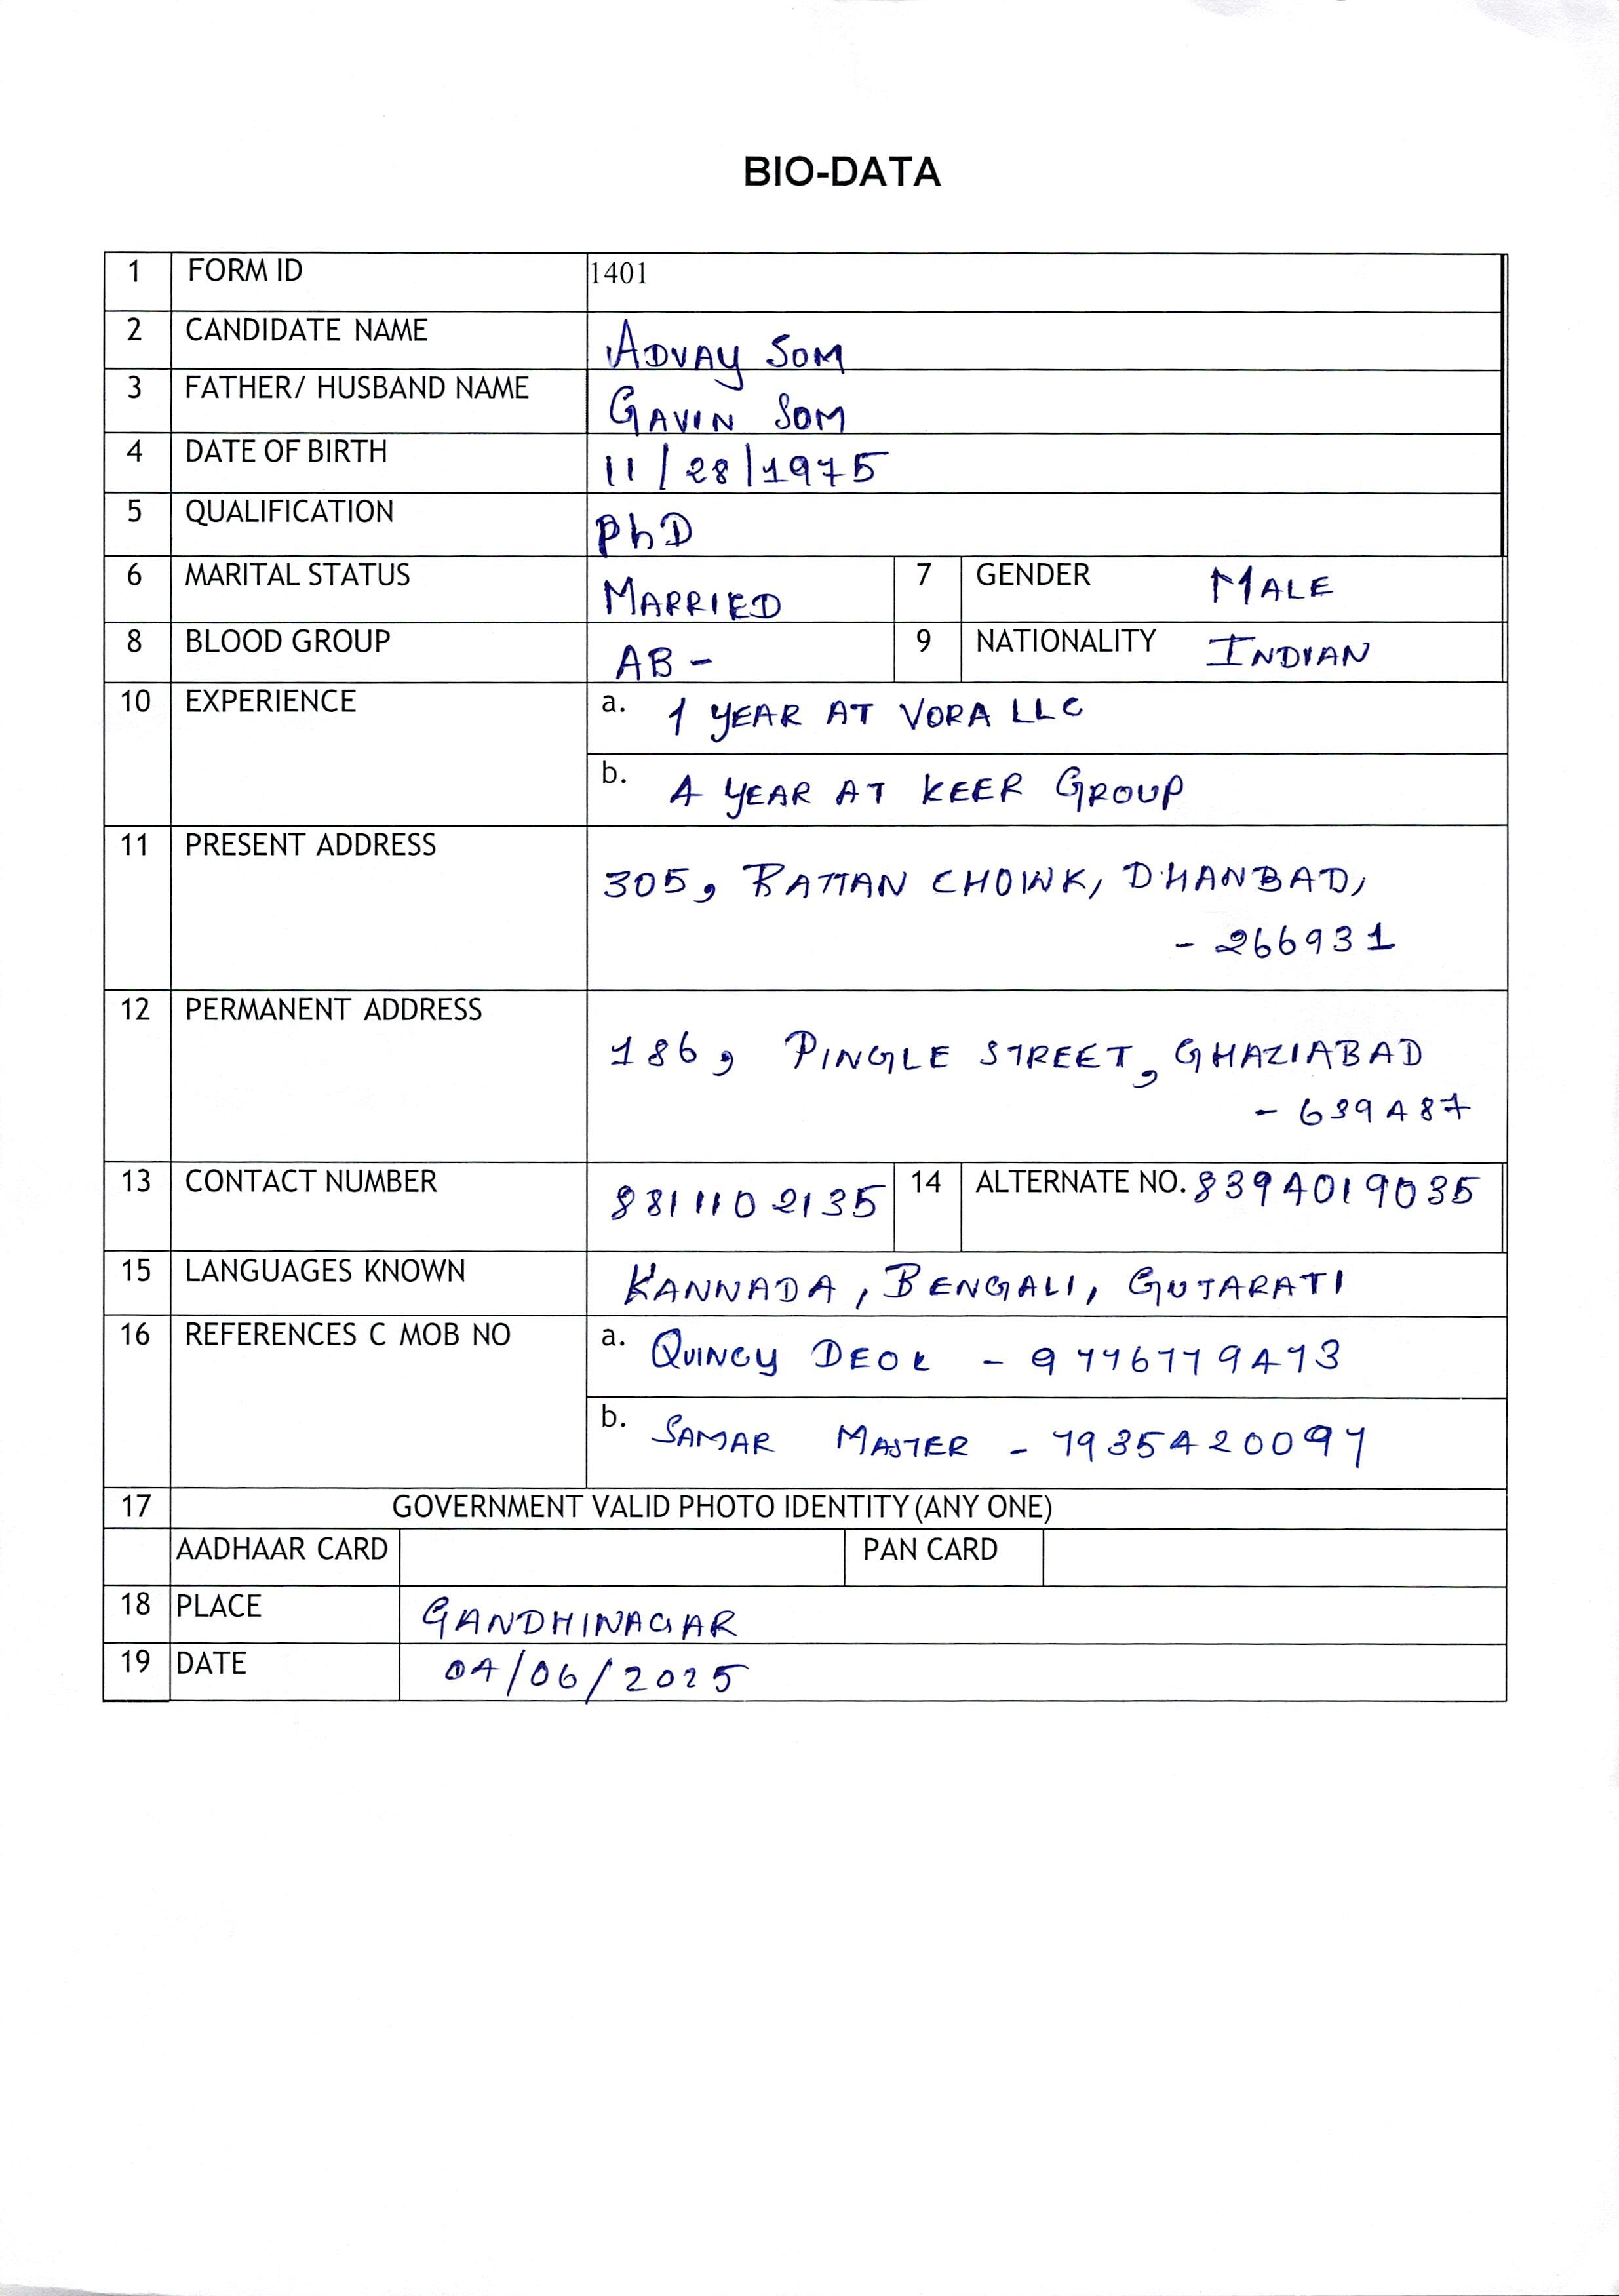 BIO-DATA
1 FORM ID 1401
2 CANDIDATE NAME ADVAY SOM
3 FATHER/ HUSBAND NAME GAVIN SOM
4 DATE OF BIRTH 11/28/1975
5 QUALIFICATION PhD
6 MARITAL STATUS MARRIED 7 GENDER MALE
8 BLOOD GROUP AB - 9 NATIONALITY INDIAN
10 EXPERIENCE a. 1 YEAR AT VORA LLC
b. 4 YEAR AT KEER GROUP
11 PRESENT ADDRESS
305, RATTAN CHOWK, DHANBAD,
- 266931
12 PERMANENT ADDRESS
186, PINGLE STREET, GHAZIABAD
- 639487
13 CONTACT NUMBER 8811102135 14 ALTERNATE NO. 8394019035
15 LANGUAGES KNOWN KANNADA, BENGALI, GUJARATI
16 REFERENCES C MOB NO a. QUINCY DEOL - 9776779473
b. SAMAR MASTER - 7935420097
17 GOVERNMENT VALID PHOTO IDENTITY (ANY ONE)
AADHAAR CARD PAN CARD
18 PLACE GANDHINAGAR
19 DATE 04/06/2025